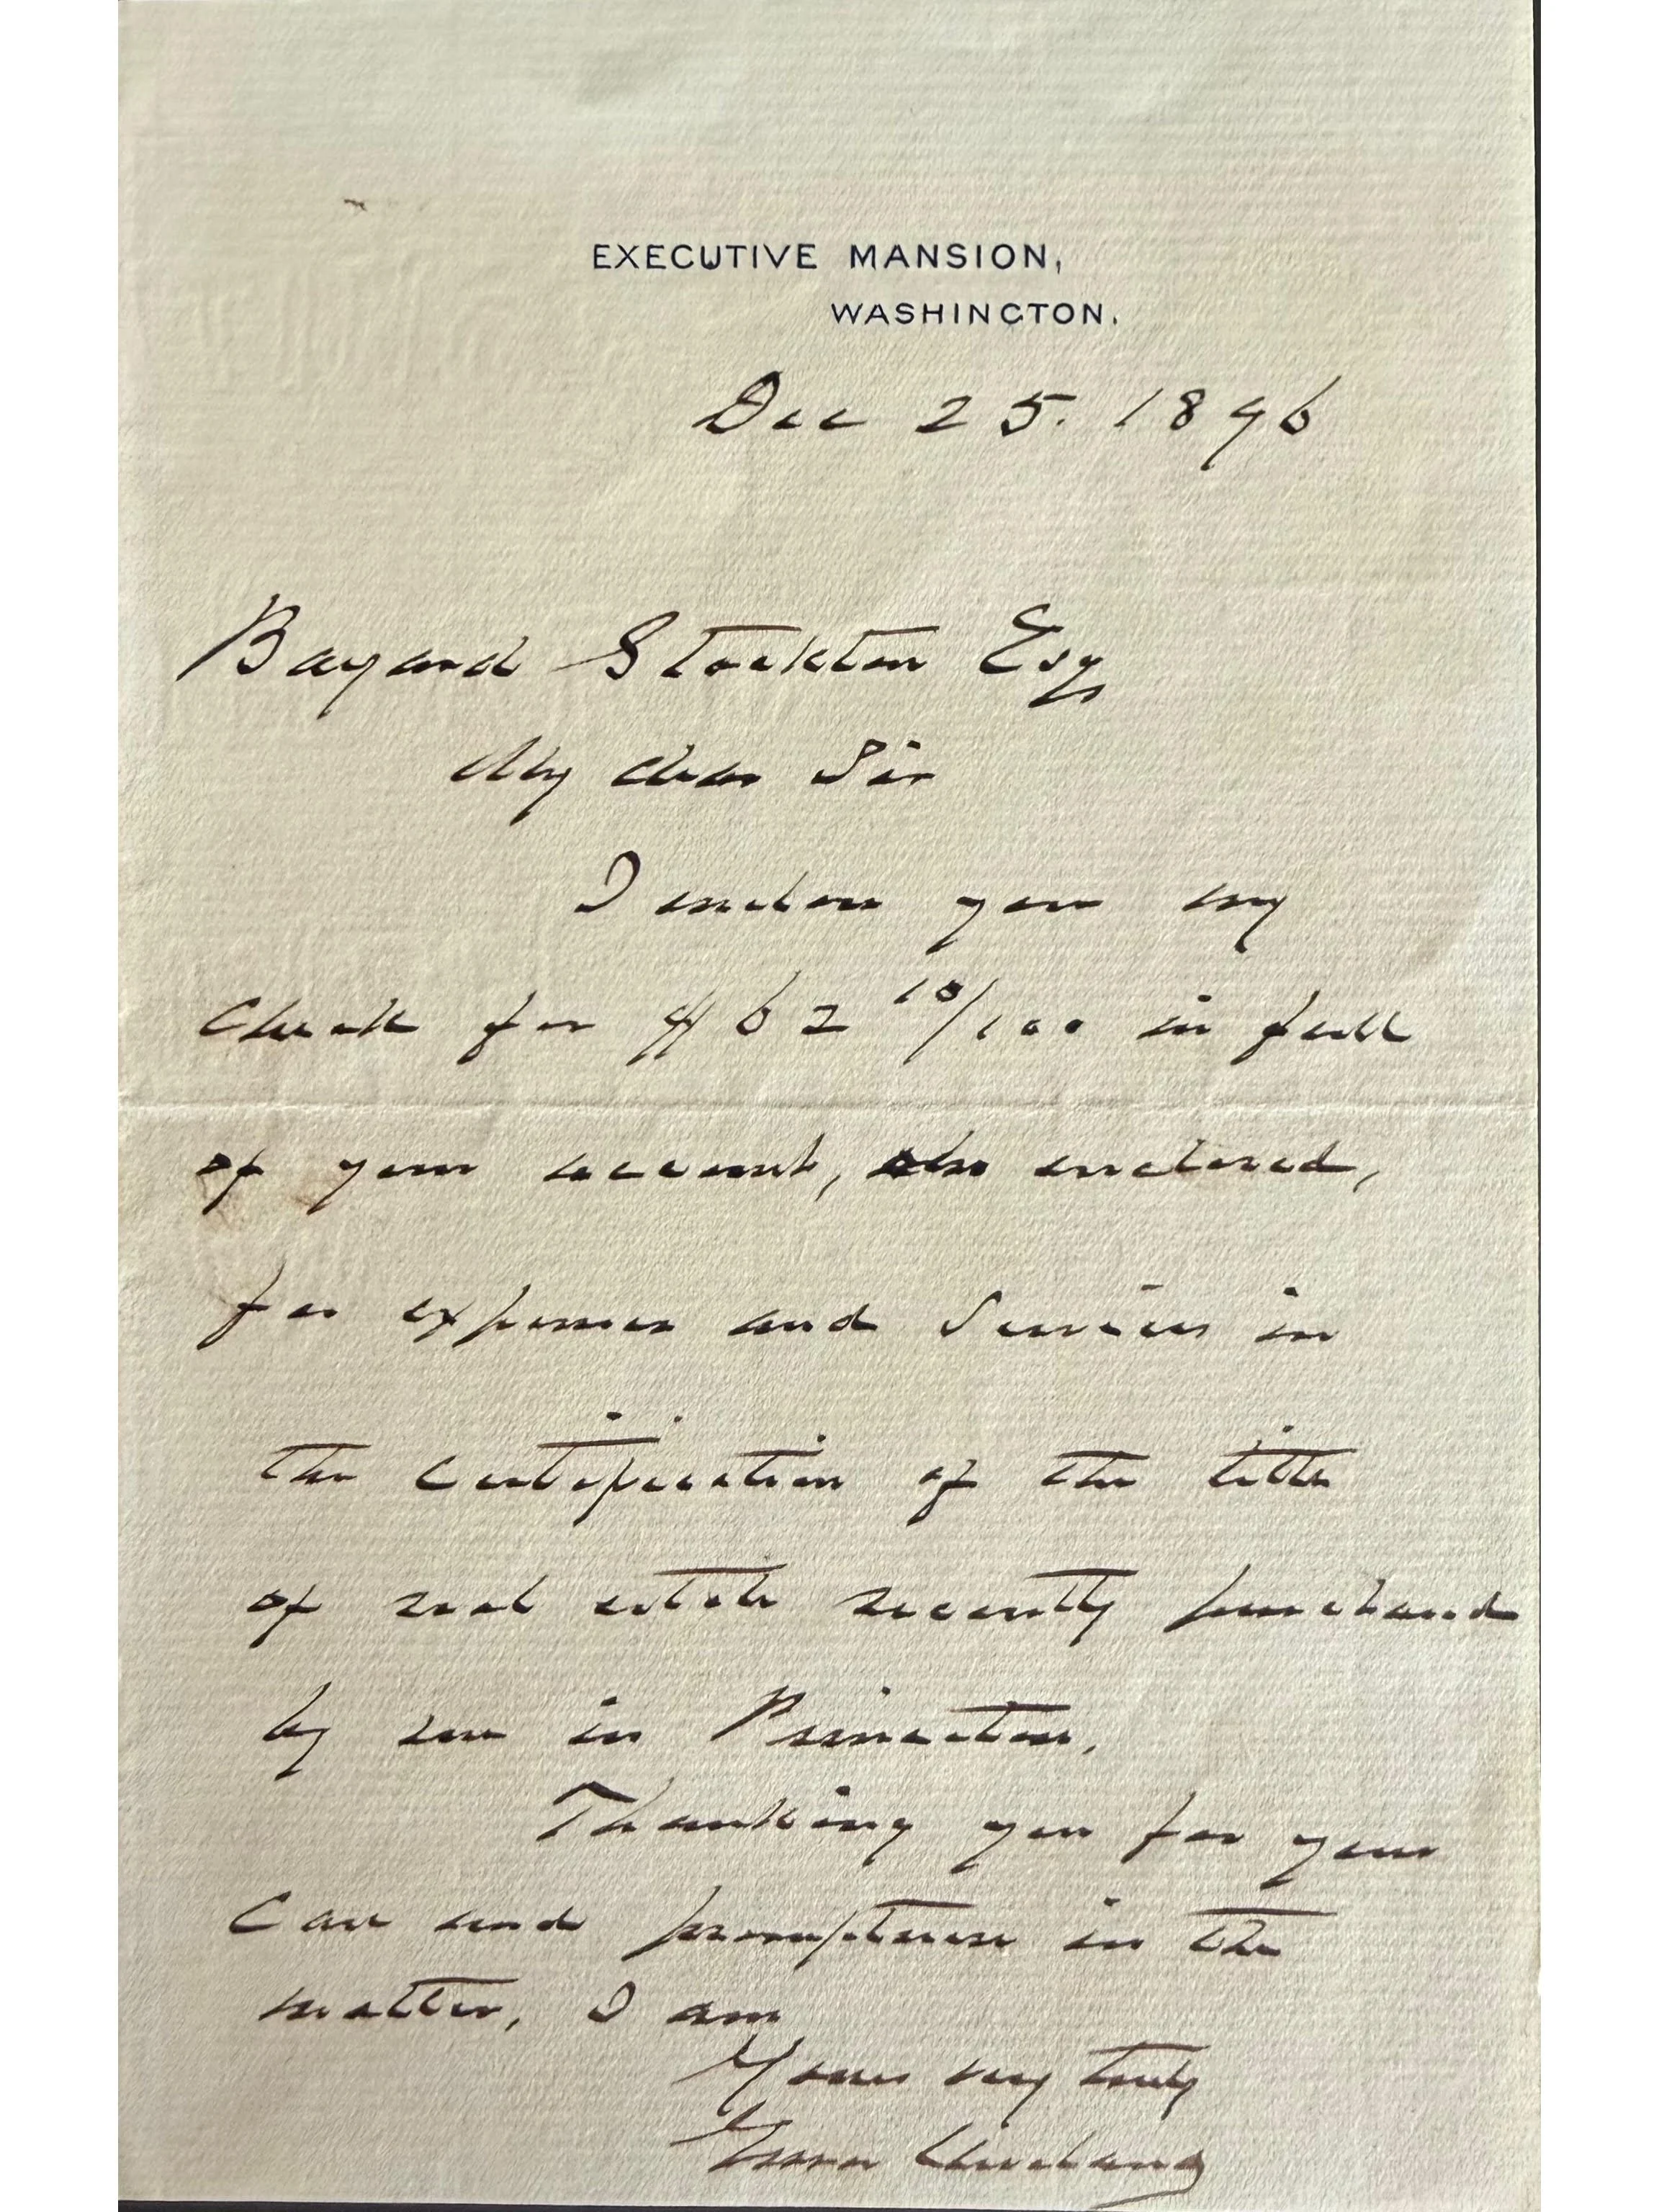 EXECUTIVE MANSION,
WASHINGTON.
Dec 25. 1896
Bayard Stockton Esq
My dear Sir
I enclose you my
Check for $62 10/100 in full
of your account, also enclosed,
for expenses and services in
the certification of the title
of real estate recently purchased
by me in Princeton.
Thanking you for your
Care and promptness in the
matter, I am
Yours very truly
Grover Cleveland